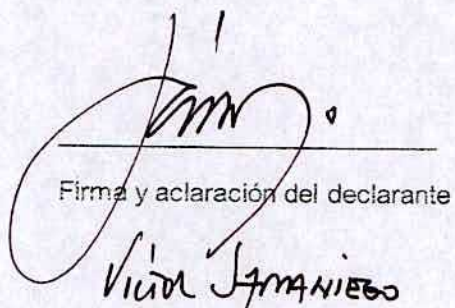 Firma y aclaración del declarante
Victor SAMANIEGO